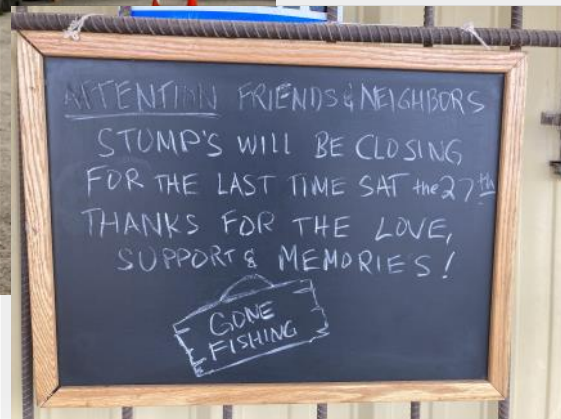 ATTENTION FRIENDS & NEIGHBORS
STUMP'S WILL BE CLOSING
FOR THE LAST TIME SAT the 27th
THANKS FOR THE LOVE,
SUPPORT & MEMORIES!
GONE
FISHING